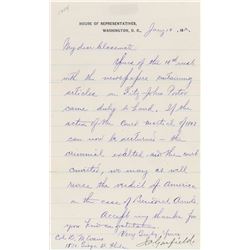 HOUSE OF REPRESENTATIVES,
WASHINGTON, D. C., Jany 18, 1880
My dear Classmate
Yours of the 10th inst
with the newspapers containing
articles on Fitz-John Porter
came duly to hand. If the
action of the Court Martial of 1863
can now be overturned - the
criminal exalted, and the court
convicted, we may as well
reverse the verdict of America
in the case of Benedict Arnold.
Accept my thanks for
your kind
Very Truly Yours
J A Garfield
Col